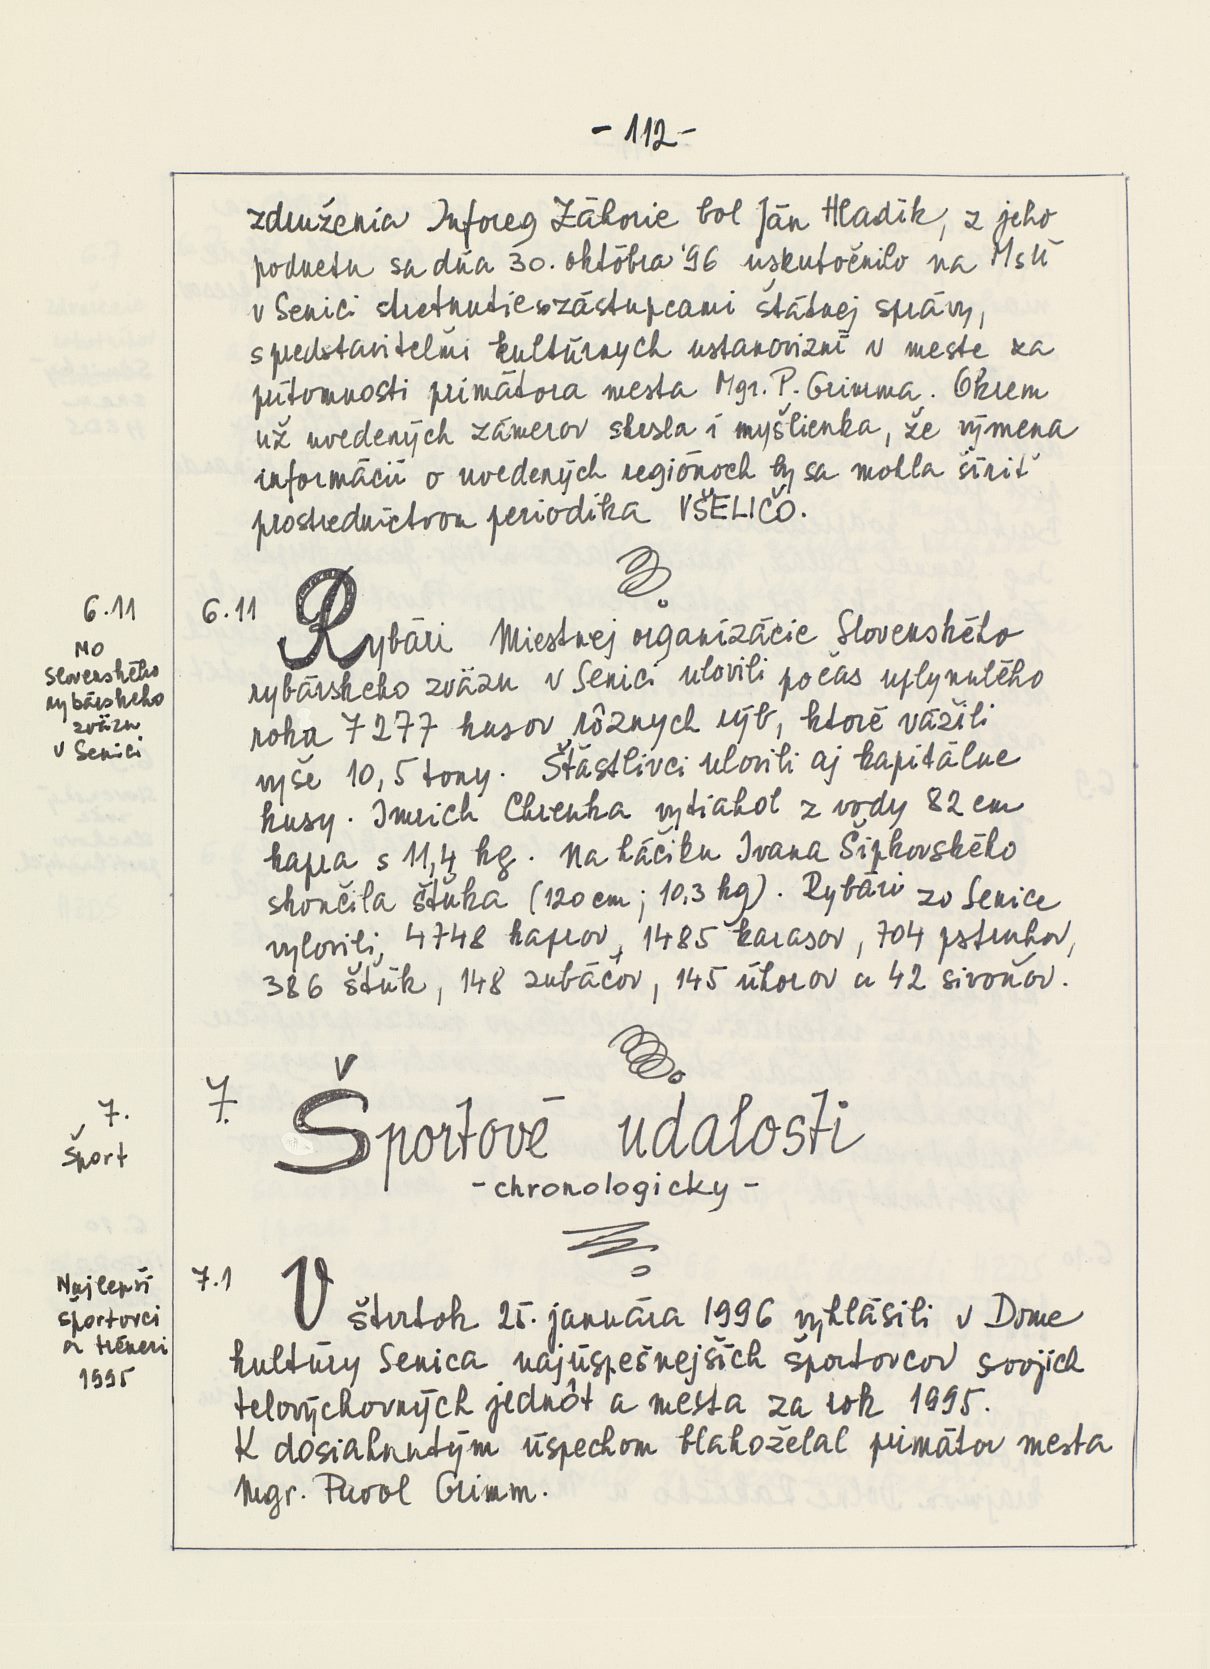 - 112 -
združenia Inforeg Záhorie bol Ján Hladík, z jeho
podnetu sa dňa 30. októbra '96 uskutočnilo na MsÚ
v Senici stretnutie so zástupcami štátnej správy,
s predstaviteľmi kultúrnych ustanovizní v meste za
prítomnosti primátora mesta Mgr. P. Grimma. Okrem
už uvedených zámerov skrsla i myšlienka, že výmena
informácií o uvedených regiónoch by sa mohla šíriť
prostredníctvom periodika VŠELIČO.
6.11
MO
Slovenského
rybárskeho
zväzu
v Senici
6.11 Rybári Miestnej organizácie Slovenského
rybárskeho zväzu v Senici ulovili počas uplynulého
roka 7277 kusov rôznych rýb, ktoré vážili
vyše 10,5 tony. Šťastlivci ulovili aj kapitálne
kusy. Imrich Chrenka vytiahol z vody 82 cm
kapra s 11,4 kg. Na háčiku Ivana Šípkovského
skončila šťuka (120 cm; 10,3 kg). Rybári zo Senice
vylovili, 4748 kaprov, 1485 karasov, 704 pstruhov,
386 šťúk, 148 zubáčov, 145 úhorov a 42 sivoňov.
7.
Šport
7. Športové udalosti
- chronologicky -
Najlepší
športovci
a tréneri
1995
7.1 V štvrtok 25. januára 1996 vyhlásili v Dome
kultúry Senica najúspešnejších športovcov svojich
telovýchovných jednôt a mesta za rok 1995.
K dosiahnutým úspechom blahoželal primátor mesta
Mgr. Pavol Grimm.